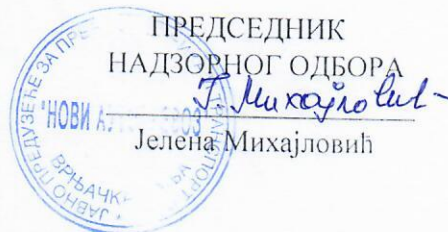 ПРЕДСЕДНИК
НАДЗОРНОГ ОДБОРА
Михајловић
Јелена Михајловић
ЈАВНО ПРЕДУЗЕЋЕ ЗА
"НОВИ